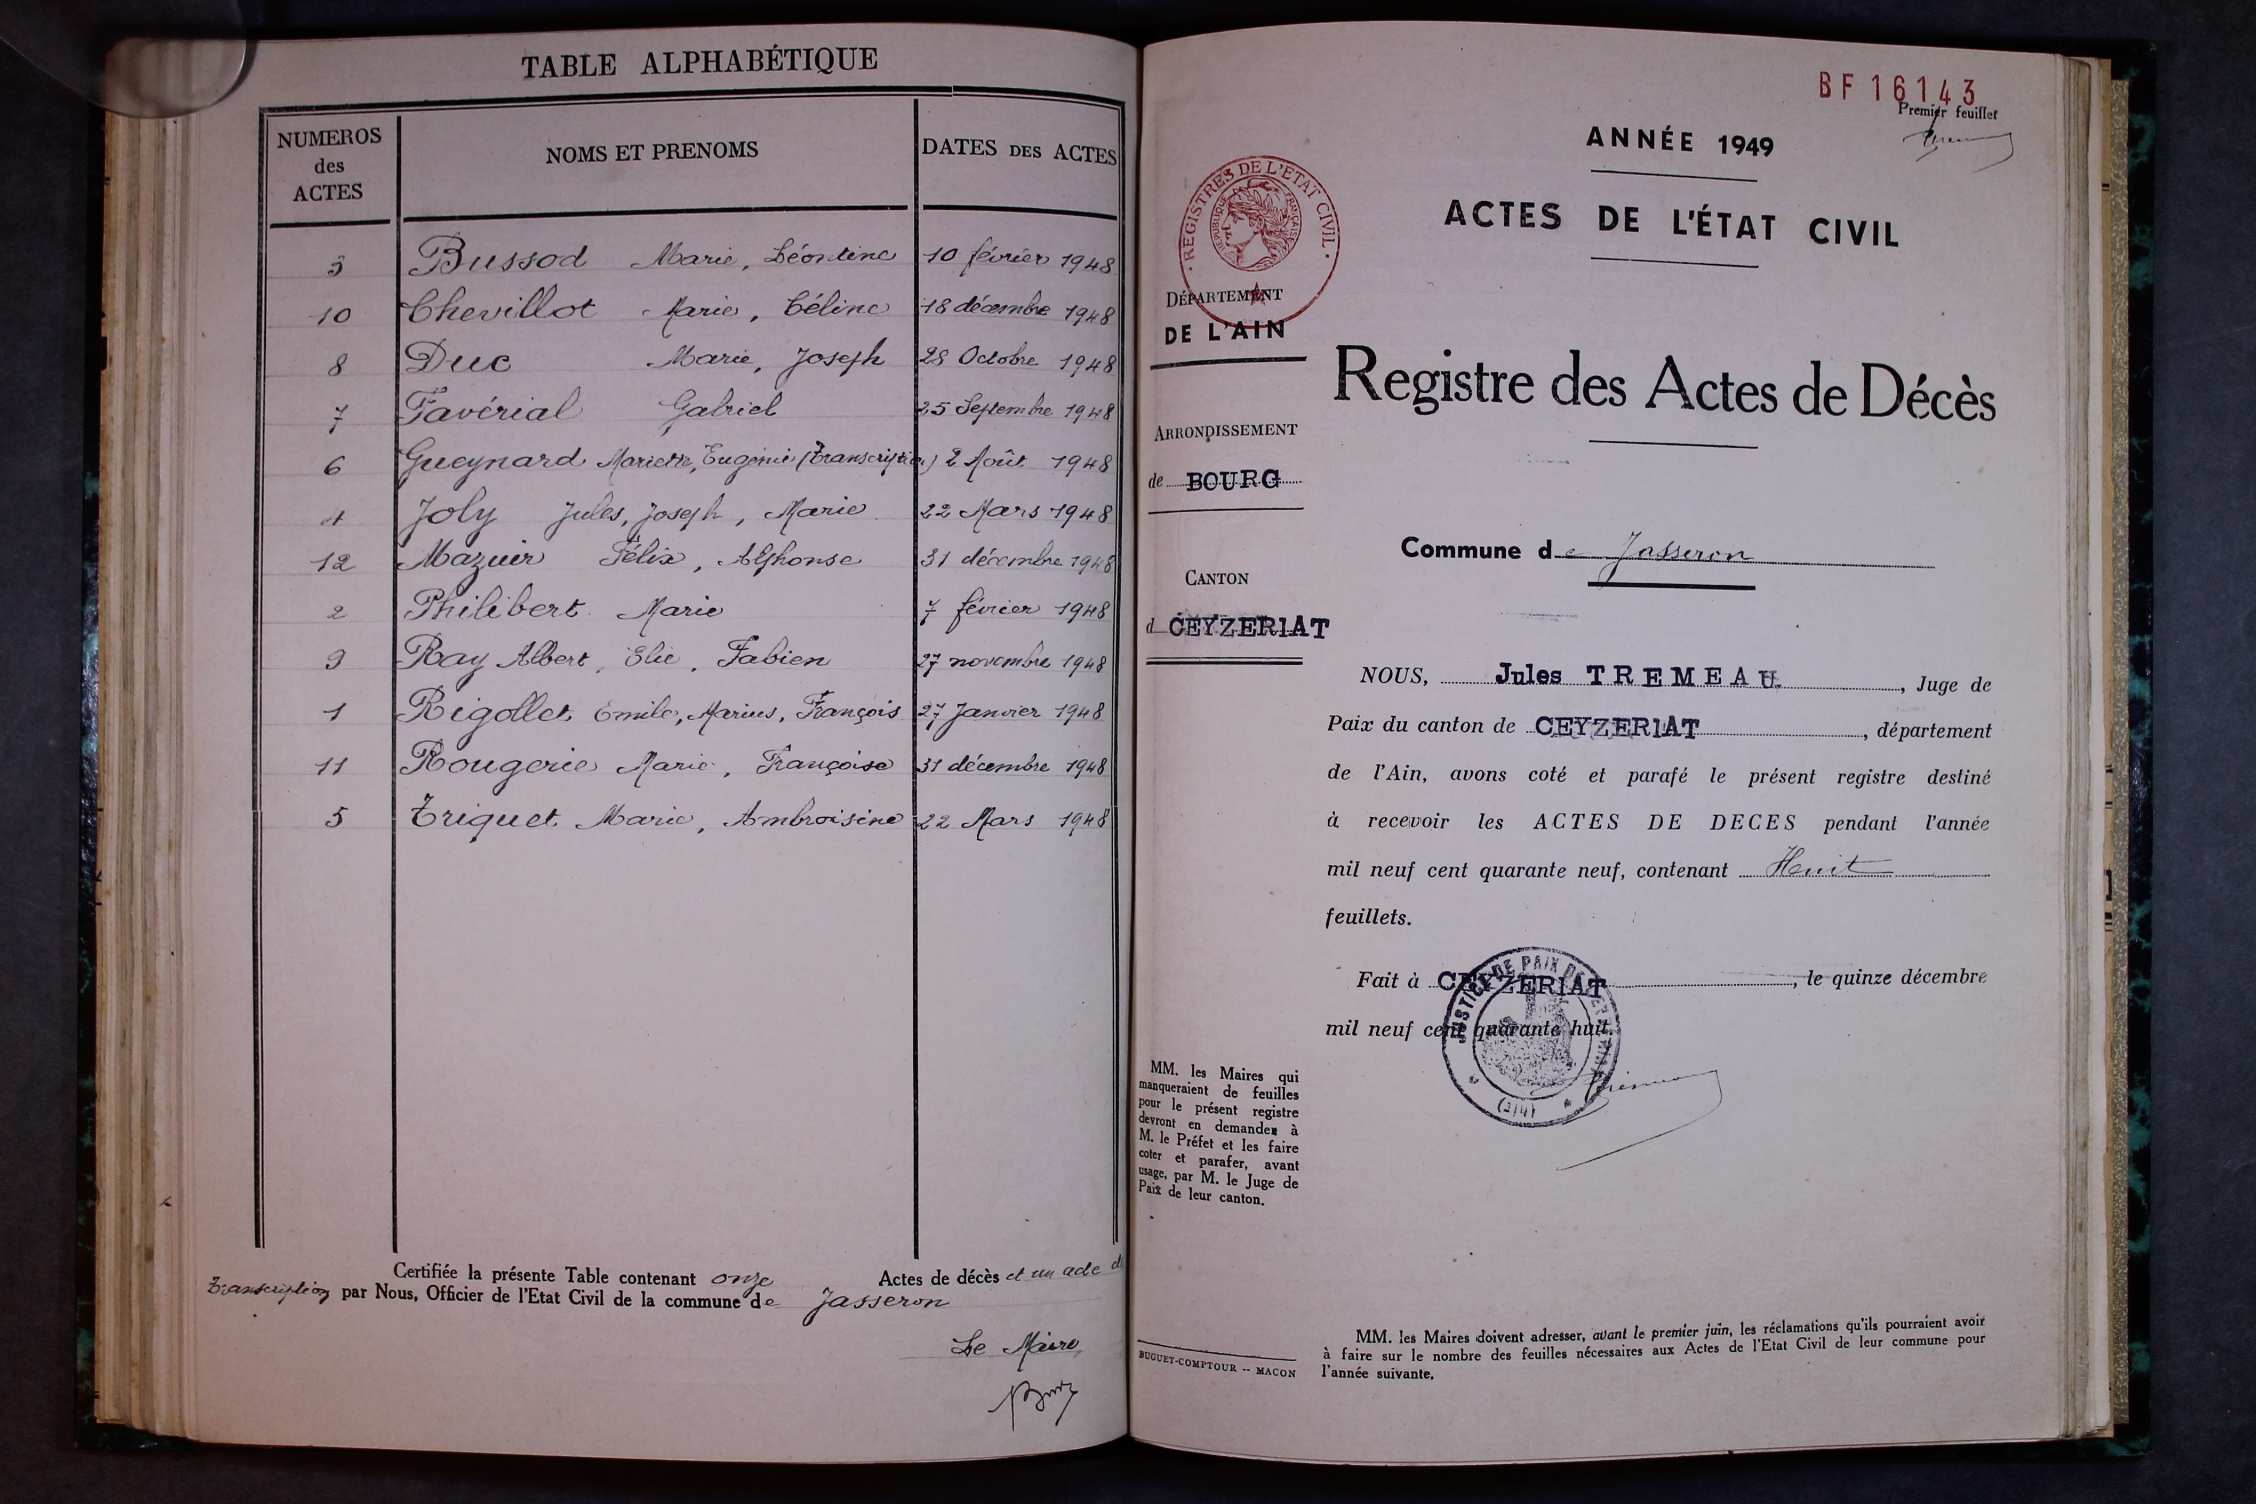 TABLE ALPHABÉTIQUE
NUMEROS des ACTES NOMS ET PRENOMS DATES DES ACTES
3 Bussod Marie, Léontine 10 février 1948
10 Chevillot Marie, Céline 18 décembre 1948
8 Duc Marie, Joseph 28 Octobre 1948
7 Favérial Gabriel 25 Septembre 1948
6 Gueynard Mariette, Eugénie (Transcription) 2 Août 1948
4 Joly Jules, Joseph, Marie 22 Mars 1948
12 Mazuir Félix, Alphonse 31 décembre 1948
2 Philibert Marie 7 février 1948
9 Ray Albert, Elie, Fabien 27 novembre 1948
1 Rigollet Emile, Marius, François 27 Janvier 1948
11 Rougerie Marie, Françoise 31 décembre 1948
5 Triquet Marie, Ambroisine 22 Mars 1948
Certifiée la présente Table contenant onze Actes de décès et un acte de
Transcription par Nous, Officier de l'Etat Civil de la commune de Jasseron
Le Maire
BF 16143
Premier feuillet
ANNÉE 1949
ACTES DE L'ÉTAT CIVIL
REGISTRES DE L'ETAT CIVIL
REPUBLIQUE FRANÇAISE
DÉPARTEMENT
DE L'AIN
Registre des Actes de Décès
ARRONDISSEMENT
de BOURG
Commune de Jasseron
CANTON
d CEYZERIAT
NOUS, Jules TREMEAU, Juge de
Paix du canton de CEYZERIAT, département
de l'Ain, avons coté et parafé le présent registre destiné
à recevoir les ACTES DE DECES pendant l'année
mil neuf cent quarante neuf, contenant Huit
feuillets.
Fait à CEYZERIAT, le quinze décembre
mil neuf cent quarante huit.
JUSTICE DE PAIX DE
MM. les Maires qui
manqueraient de feuilles
pour le présent registre
devront en demander à
M. le Préfet et les faire
coter et parafer, avant
usage, par M. le Juge de
Paix de leur canton.
BUGUET-COMPTOUR -- MACON
MM. les Maires doivent adresser, avant le premier juin, les réclamations qu'ils pourraient avoir
à faire sur le nombre des feuilles nécessaires aux Actes de l'Etat Civil de leur commune pour
l'année suivante.